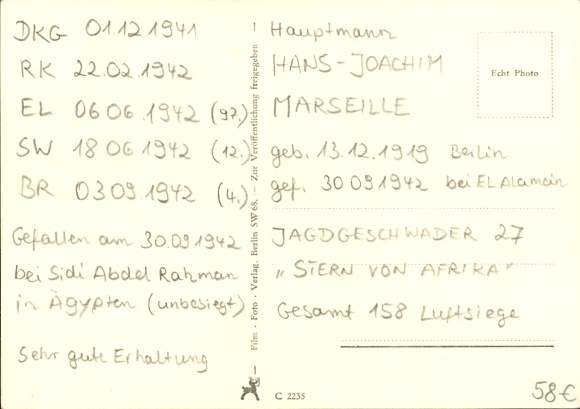 DKG 01.12.1941
RK 22.02.1942
EL 06.06.1942 (97.)
SW 18.06.1942 (12.)
BR 03.09.1942 (4.)
Gefallen am 30.09.1942
bei Sidi Abdel Rahman
in Ägypten (unbesiegt)
Sehr gute Erhaltung
Film - Foto - Verlag, Berlin SW 68. — Zur Veröffentlichung freigegeben
Hauptmann
HANS-JOACHIM
MARSEILLE
Echt Photo
geb. 13.12.1919 Berlin
gef. 30.09.1942 bei EL Alamein
JAGDGESCHWADER 27
„STERN VON AFRIKA"
Gesamt 158 Luftsiege
C 2235
58€